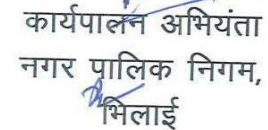 कार्यपालन अभियंता
नगर पालिक निगम,
भिलाई